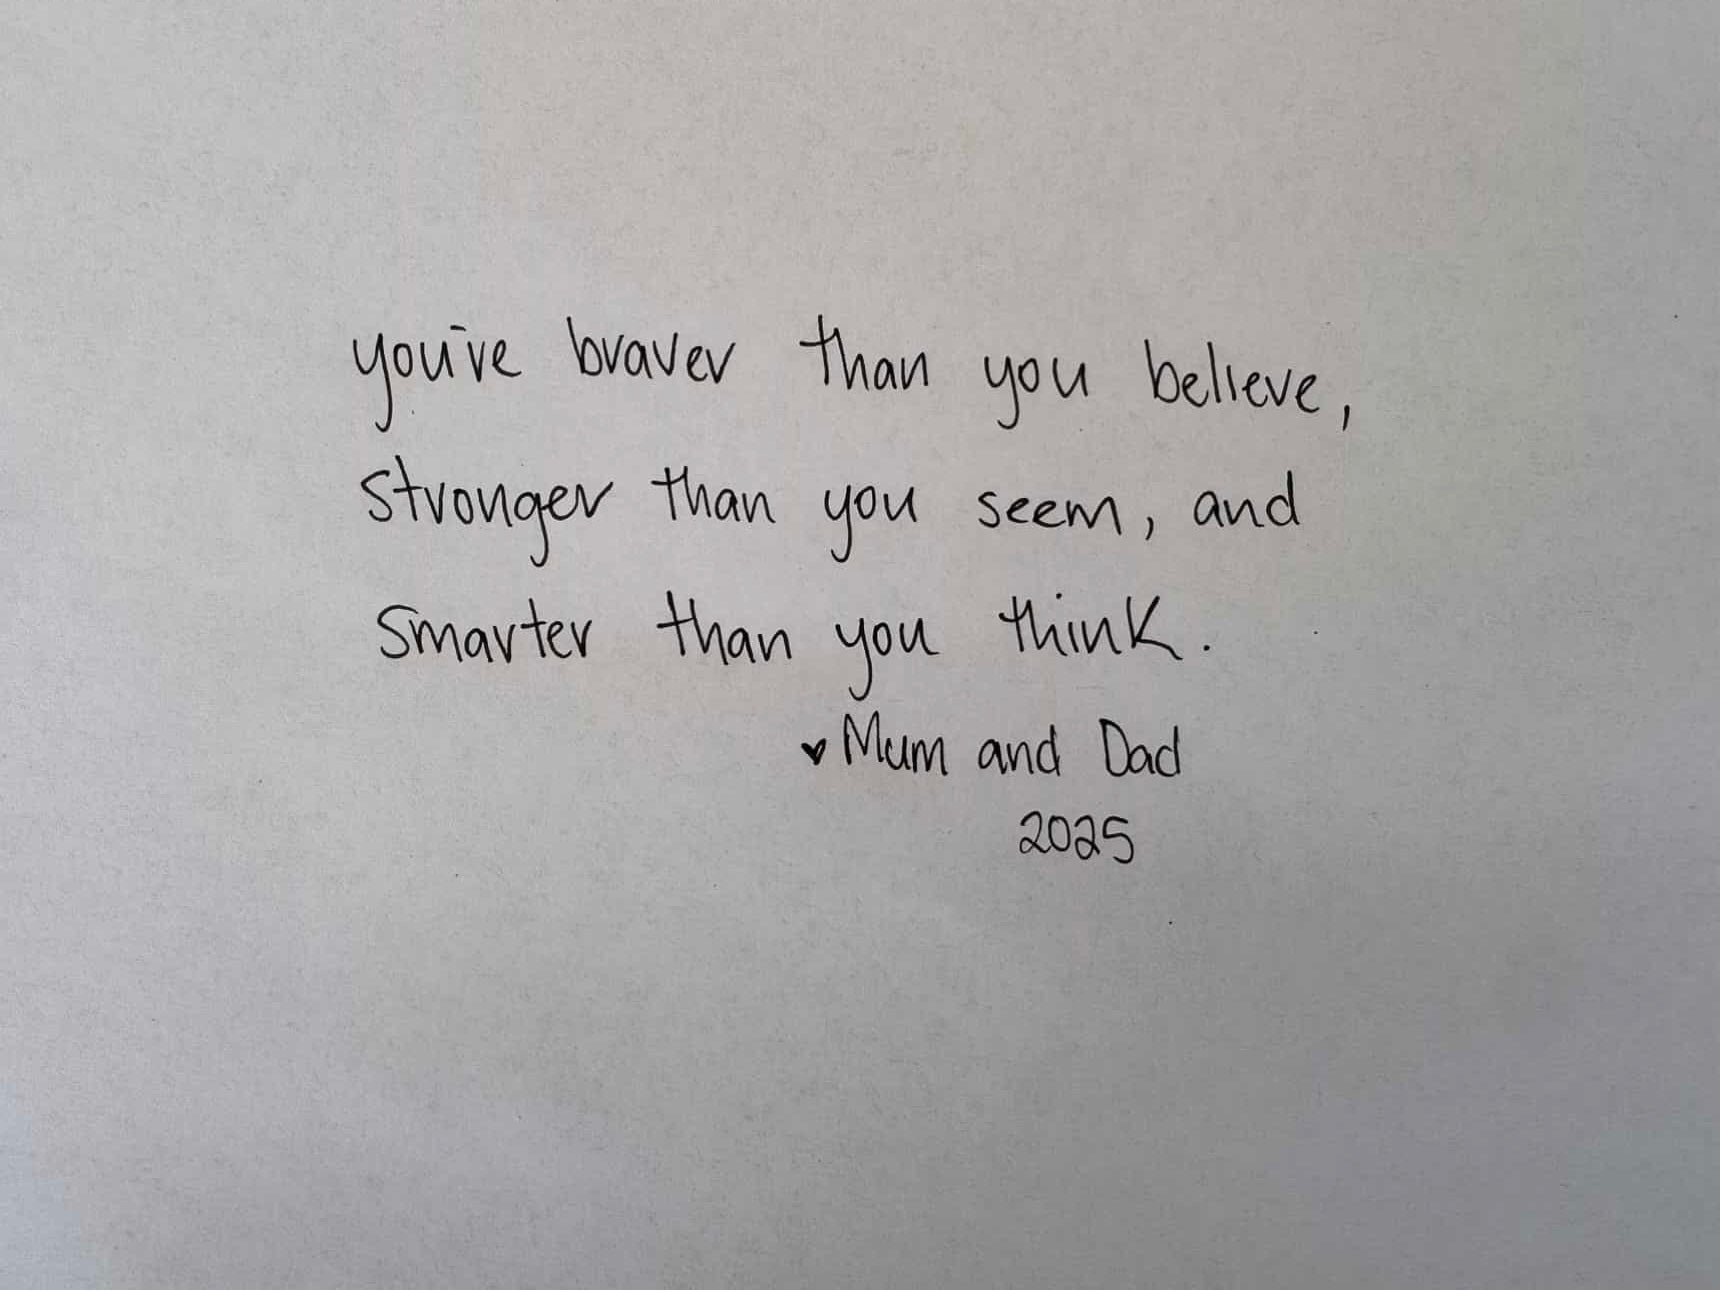 you're braver than you believe,
stronger than you seem, and
smarter than you think.
♥ Mum and Dad
2025